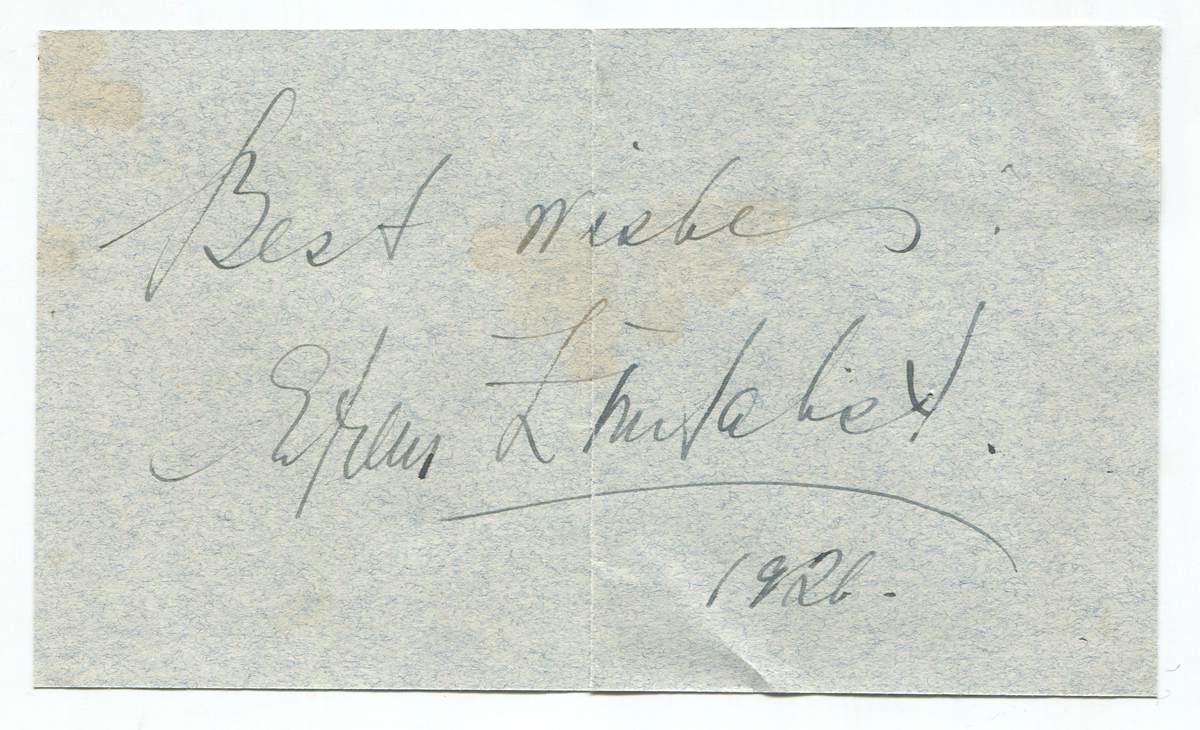 Best wishes!
Efrem Zimbalist.
1926.